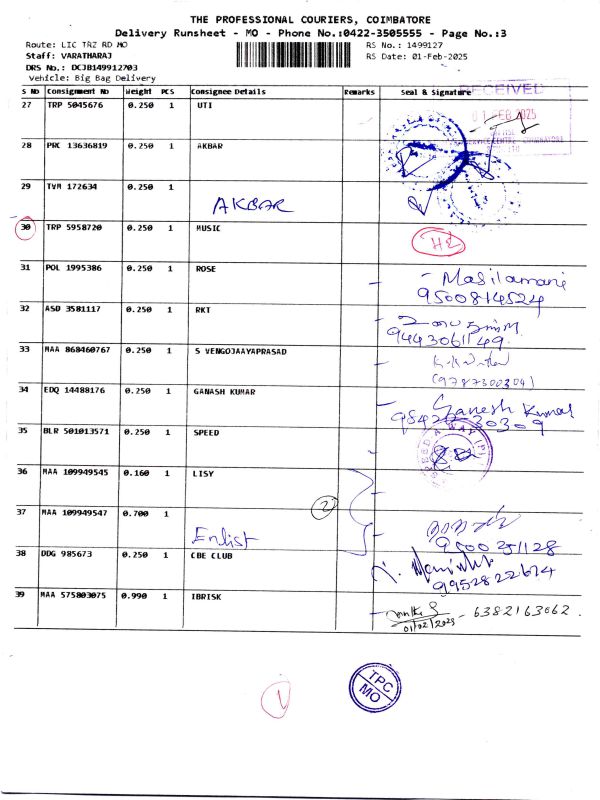 THE PROFESSIONAL COURIERS, COIMBATORE
Delivery Runsheet - MO - Phone No.:0422-3505555 - Page No.:3
Route: LIC TRZ RD MO
RS No.: 1499127
Staff: VARATHARAJ
RS Date: 01-Feb-2025
DRS No.: DCJB149912703
Vehicle: Big Bag Delivery
S No Consignment No Weight PCS Consignee Details Remarks Seal & Signature
RECEIVED
27 TRP 5045676 0.250 1 UTI
01 FEB 2025
28 PRC 13636819 0.250 1 AKBAR
29 TVM 172634 0.250 1
AKBAR
30 TRP 5958720 0.250 1 MUSIC
31 POL 1995386 0.250 1 ROSE
Masilamani
9500814524
32 ASD 3581117 0.250 1 RKT
9443061149
33 MAA 868460767 0.250 1 S VENGOJAAYAPRASAD
(9787300304)
34 EDQ 14488176 0.250 1 GANASH KUMAR
Ganesh Kumal
98422-30309
35 BLR 501013571 0.250 1 SPEED
36 MAA 109949545 0.160 1 LISY
2
37 MAA 109949547 0.700 1
Enlist
9500251128
38 DDG 985673 0.250 1 CBE CLUB
9952822674
39 MAA 575803075 0.990 1 IBRISK
6382163062
01/02/2025
TPC
MO